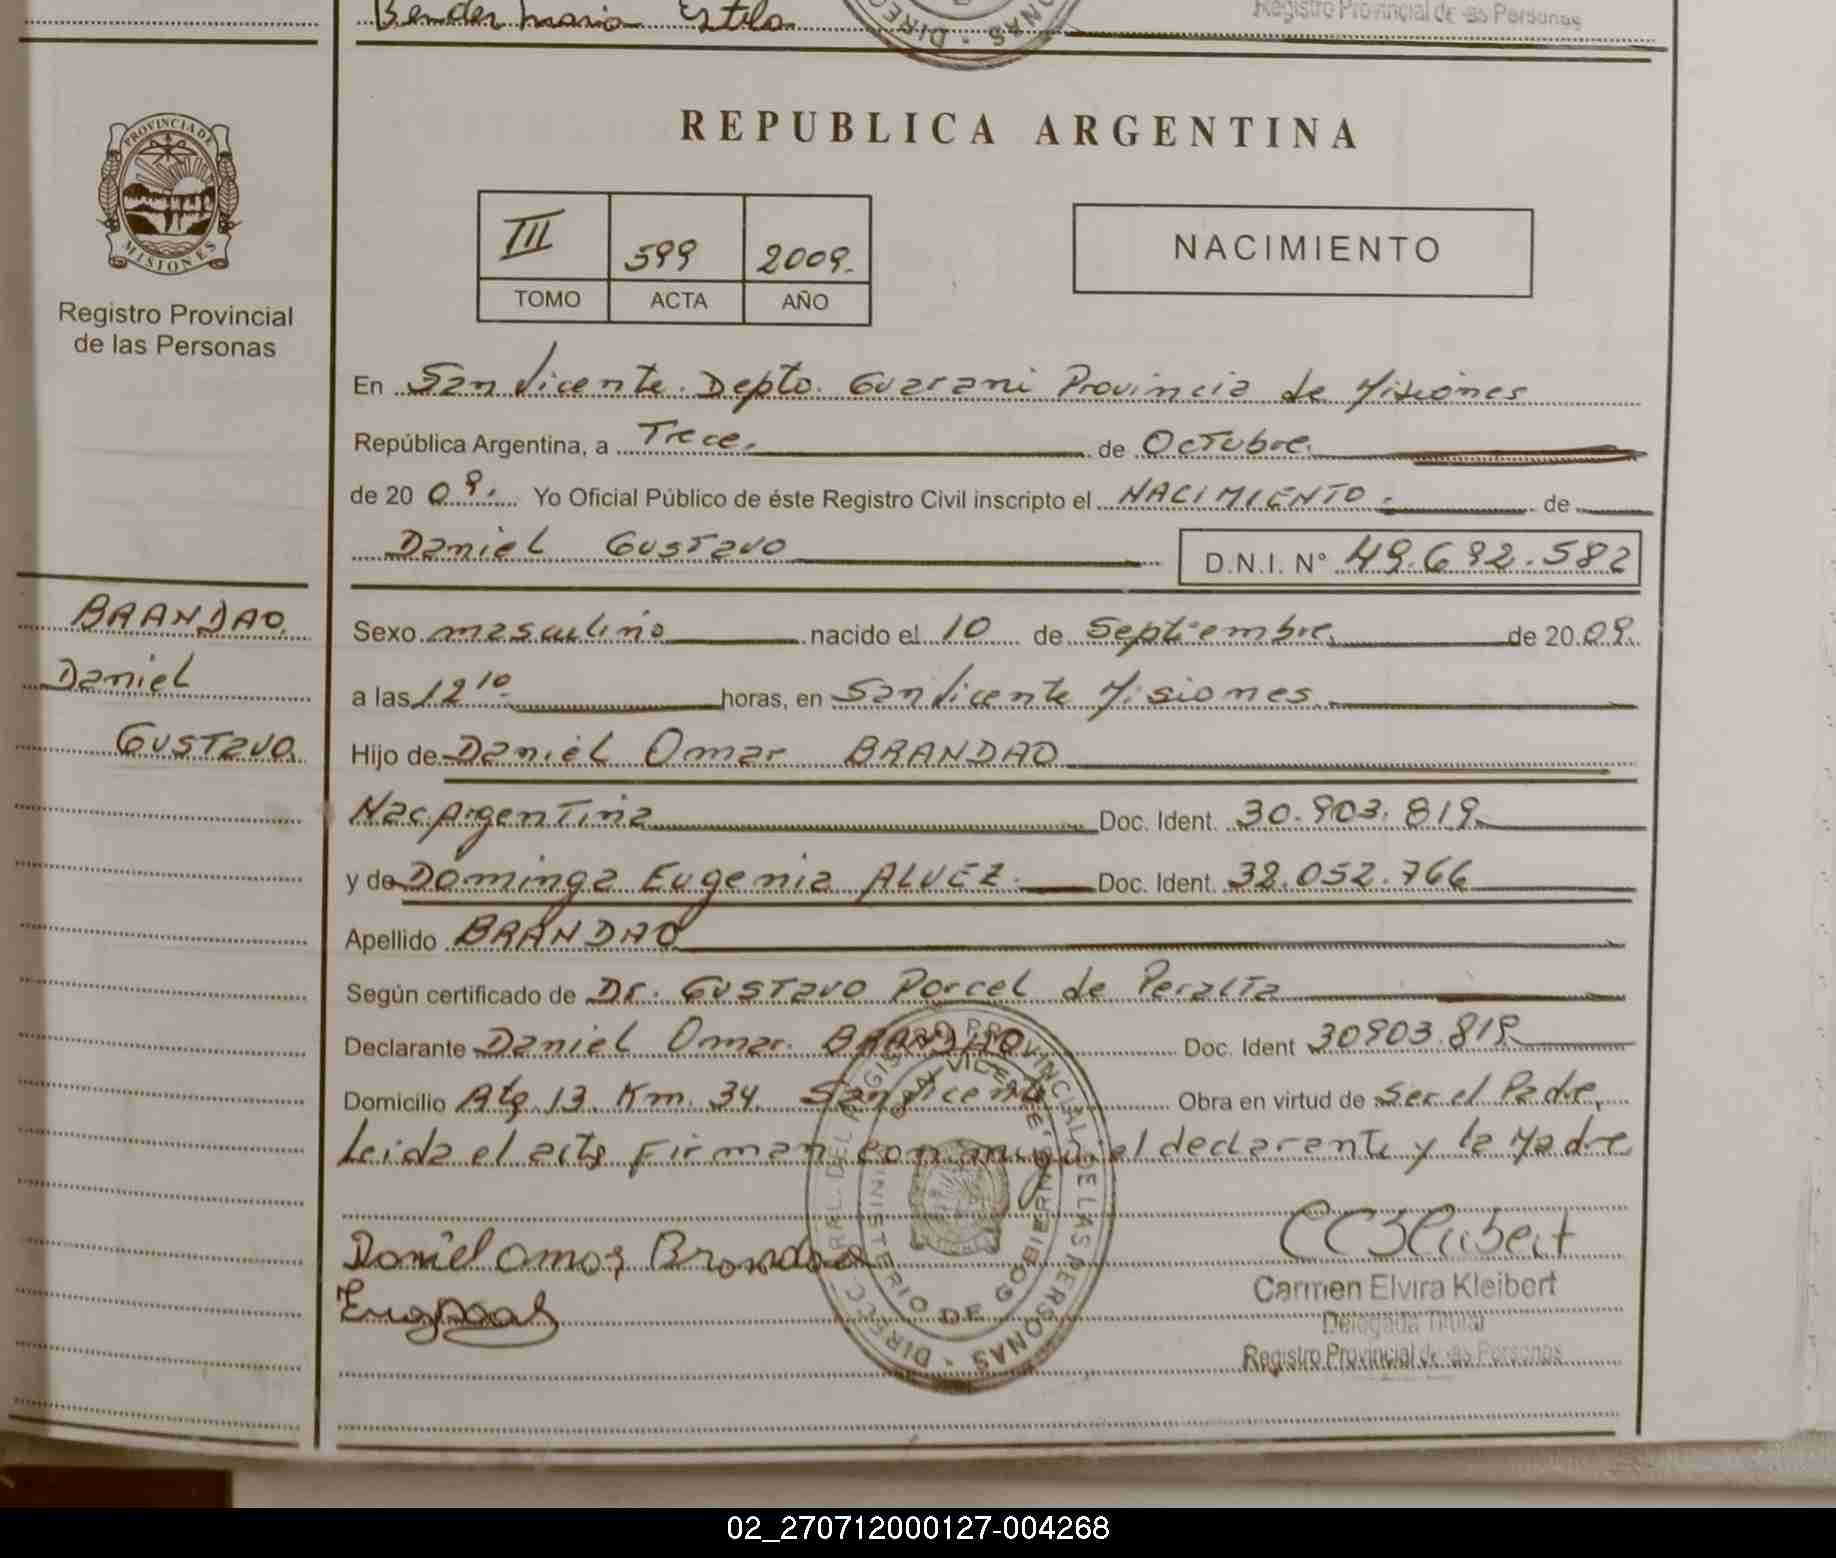 Bender Maria Estela
Registro Provincial de las Personas
PROVINCIA DE
MISIONES
Registro Provincial
de las Personas
REPUBLICA ARGENTINA
III 599 2009.
TOMO ACTA AÑO
NACIMIENTO
En San Vicente. Depto. Guarani Provincia de Misiones
República Argentina, a Trece. de Octubre.
de 20 09. Yo Oficial Público de éste Registro Civil inscripto el NACIMIENTO. de
Daniel Gustavo D.N.I. Nº 49.692.582
BRANDAO.
Daniel
Gustavo.
Sexo masculino nacido el 10 de Septiembre de 20 09.
a las 12 10. horas, en San Vicente Misiones.
Hijo de Daniel Omar BRANDAO
Nac. Argentina Doc. Ident. 30.903.819.
y de Dominga Eugenia ALVEZ. Doc. Ident. 38.052.766
Apellido BRANDAO
Según certificado de Dr. Gustavo Porcel de Peralta
Declarante Daniel Omar. BRANDAO Doc. Ident 30903.819.
Domicilio Rta 13. Km. 34. San Vicente Obra en virtud de Ser el Padre.
Leida el acta Firman conmigo el declarante y la Madre
Daniel Omar Brandao
CCKleibert
Carmen Elvira Kleibert
Delegada Titular
Registro Provincial de las Personas
DIRECC. GRAL. DEL REGISTRO PROVINCIAL DE LAS PERSONAS
"SAN VICENTE" MINISTERIO DE GOBIERNO
02_270712000127-004268